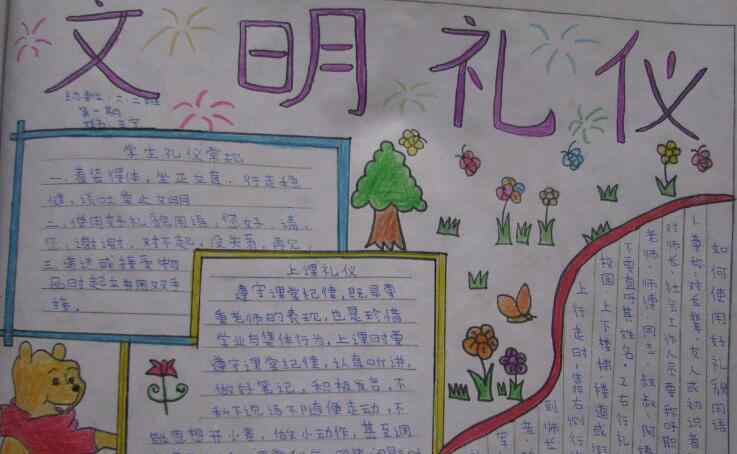 文明礼仪
六、二班
第一期
学生礼仪常规
一、着装得体，坐正立直、行走稳
健，谈吐举止文明
二、使用好礼貌用语，您好、请、
您、谢谢、对不起、没关系、再见、
三、递送或接受物
品时起立并用双手
接。
上课礼仪
遵守课堂纪律，既是尊
重老师的表现，也是珍惜
学业与集体行为，上课时要
遵守课堂纪律，认真听讲，
做好笔记，积极发言，不
私下说话不随便走动，不
做小动作，甚至
如何使用好礼貌用语
1、尊称：对长辈、友人或初识者
对师长、社会工作人员要称呼职
老师、师傅、同志、叔叔、阿姨
不要直呼其姓名。2、右行礼
校园、上下楼梯、楼道或街
上行走时，靠右侧行
到师长